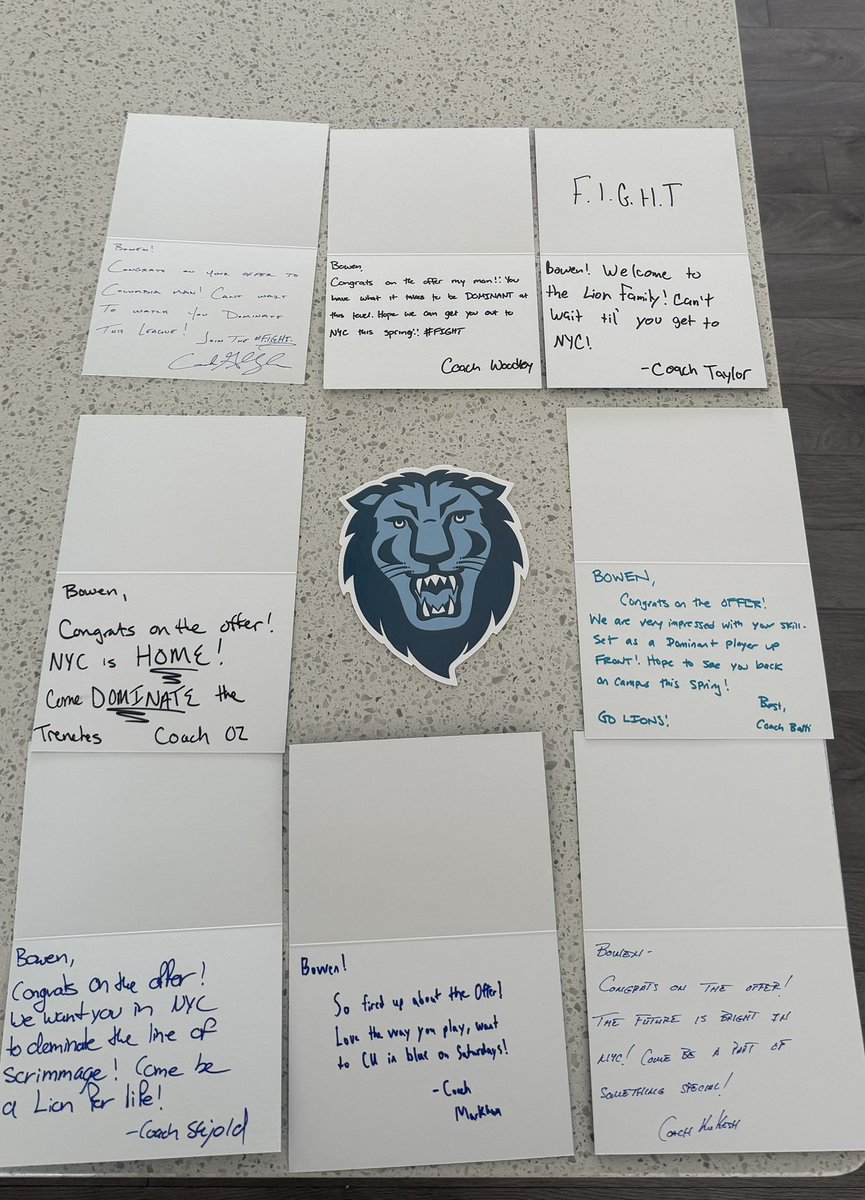 Bowen!
Congrats on your offer to
Columbia man! Can't wait
to watch you dominate
this league! Join the #FIGHT.
Bowen,
Congrats on the offer my man!! You
have what it takes to be DOMINANT at
this level. Hope we can get you out to
NYC this spring!! #FIGHT
Coach Woodley
F.I.G.H.T
Bowen! Welcome to
the Lion Family! Can't
wait til' you get to
NYC!
-Coach Taylor
Bowen,
Congrats on the offer!
NYC is HOME!
Come DOMINATE the
Trenches Coach OZ
BOWEN,
Congrats on the OFFER!
We are very impressed with your skill-
set as a Dominant player up
FRONT! Hope to see you back
on campus this spring!
Best,
GO LIONS! Coach
Bowen,
Congrats on the offer!
We want you in NYC
to dominate the line of
scrimmage! Come be
a Lion for life!
-Coach
Bowen!
So fired up about the Offer!
Love the way you play, want
to CU in blue on Saturdays!
-Coach
Markham
Bowen-
Congrats on the offer!
The future is bright in
NYC! Come be a part of
something special!
Coach